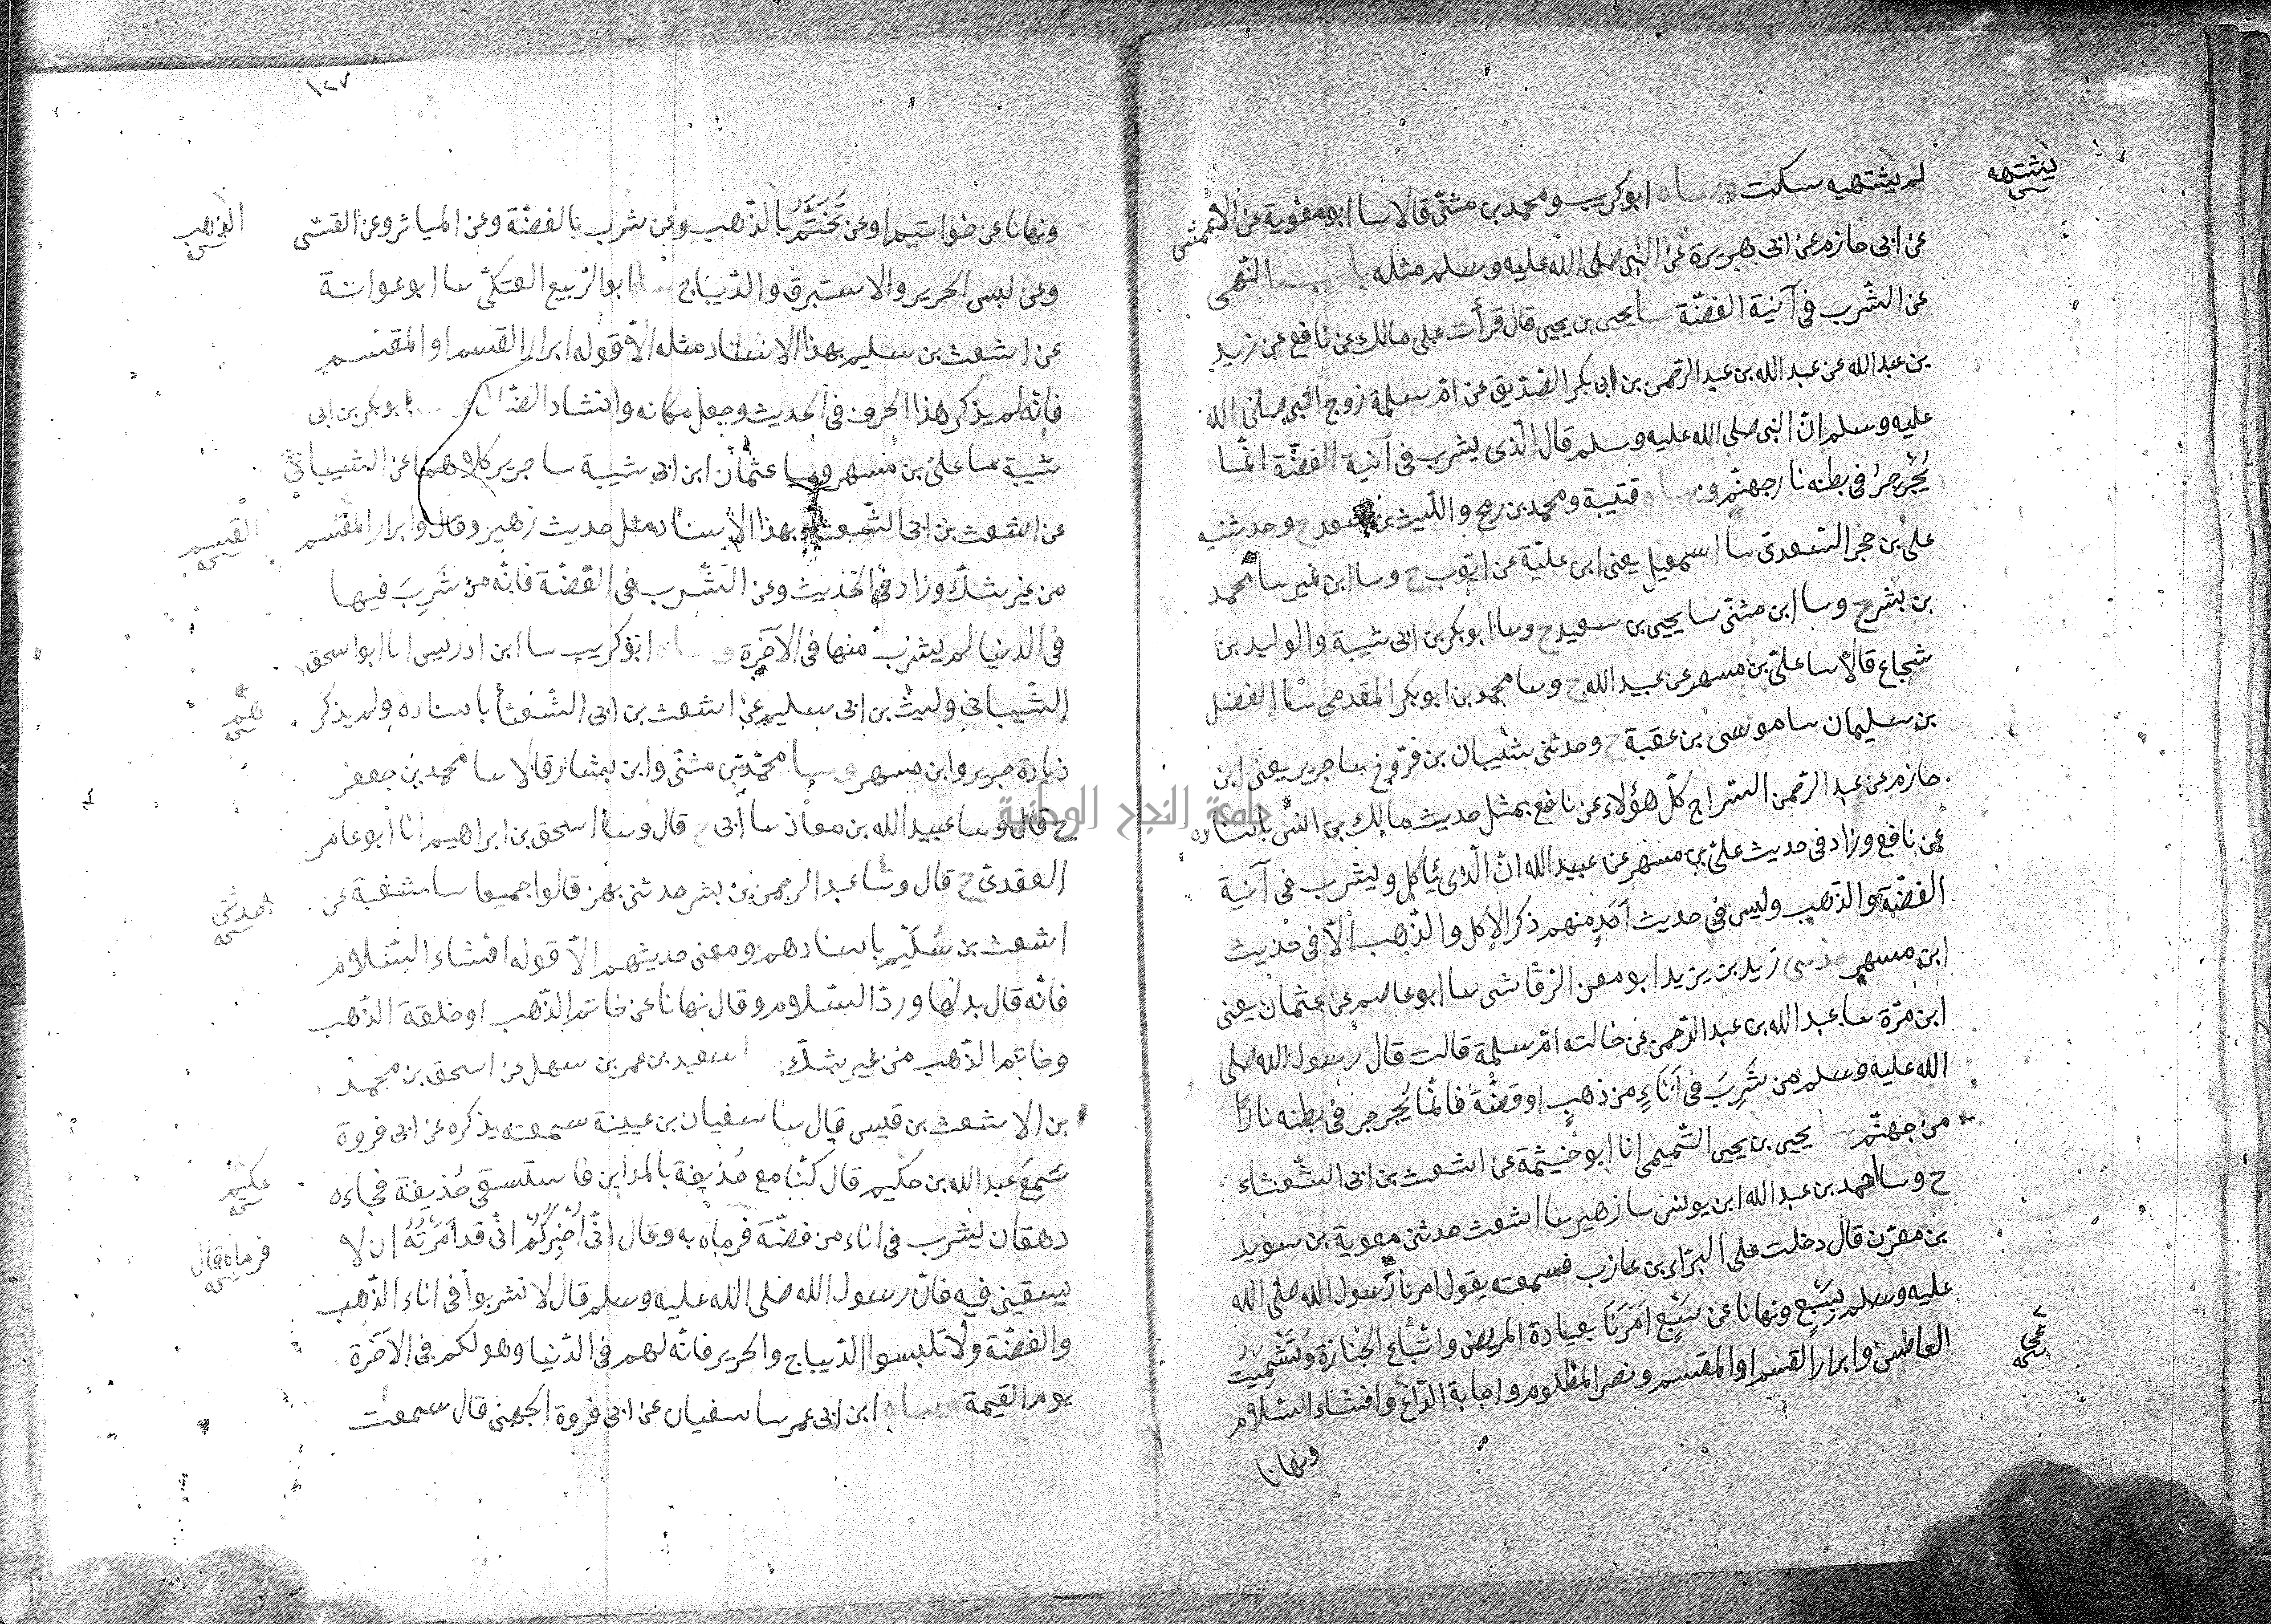 لم يشتهيه سكت وساه ابوكريب ومحمد بن مثنّى قالا سا ابو معٰوية عن الاعمش
يشتهه
عن ابى حازم عن ابى هريرة عن النبى صلى الله عليه وسلم مثله باب النّهى
عن الشّرب فى آنية الفضّة سا يحيى بن يحيى قال قرأت على مالك عن نافع عن زيد
بن عبد الله عن عبد الله بن عبد الرّحمن بن ابى بكر الصّدّيق عن امّ سلمة زوج النبى صلى الله
عليه وسلم انّ النبى صلى الله عليه وسلم قال الّذى يشرب فى آنية الفضّة انّما
يُجَرجِرُ فى بطنه نار جهنّم وساه قتيبة ومحمد بن رمح واللّيث بن سعد ح وحدثنيه
على بن حجر السّعدىّ سا اسمعيل يعنى ابن عليّة عن ايّوب ح وسا ابن نمير سا محمد
بن بشر ح وسا ابن مثنّى سا يحيى بن سعيد ح وسا ابو بكر بن ابى شيبة والوليد بن
شجاع قالا سا علىّ بن مسهر عن عبيد الله ح وسا محمد بن ابو بكر المقدمى سا الفضل
بن سليمان سا موسى بن عقبة ح وحدثنى شيبان بن فرّوخ سا جرير يعنى ابن
حازم عن عبد الرّحمن السّراج كلّ هؤلاء عن نافع بمثل حديث مالك بن انس باسناده
عن نافع وزاد فى حديث علىّ بن مسهر عن عبيد الله انّ الّذى يأكل ويشرب فى آنية
الفضّة والذّهب وليس فى حديث أحدٍ منهم ذكر الاكل والذّهب الّا فى حديث
ابن مسهر حدثنى زيد بن يزيد ابو معن الرّقاشى سا ابو عاصم عن عثمان يعنى
ابن مرّة سا عبد الله بن عبد الرّحمن عن خالته امّ سلمة قالت قال رسول الله صلى
الله عليه وسلم من شَرِبَ فى اناءٍ من ذهبٍ او فضّة فانّما يُجرجر فى بطنه نارًا
من جهنّم سا يحيى بن يحيى التّميمى انا ابو خيثمة عن اشعث بن ابى الشّعثاء
ح وسا احمد بن عبد الله ابن يونس سا زهير سا اشعث حدثنى معوية بن سويد
بن مقرّن قال دخلت على البرّاء بن عازب فسمعته يقول امرنا رسول الله صلى الله
عليه وسلم بِسَبْعٍ ونهانا عن سَبْعٍ اَمَرَنَا بعيادة المريض واتّباع الجنازة وَتَشْمِيتِ
العاطس وابرار القسم او المقسم ونصر المظلوم واجابة الدّاع وافشاء السّلام
ونهانا
١٢٧
ونهانا عن خواتيم او عن تَخَتُّم بالذّهب وعن شرب بالفضّة وعن المياثر وعن القسّى
الذهب
وعن لبس الحرير والاستبرق والدّيباج سا ابو الرّبيع العتكىّ سا ابو عوانة
عن اشعث بن سليم بهذا الاسناد مثله الّا قوله ابرار القسم او المقسم
فانّه لم يذكر هذا الحرف فى الحديث وجعل مكانه وانشاد الضّالّ وسا ابو بكر بن ابى
شيبة سا علىّ بن مسهر وسا عثمان ابن ابى شيبة سا جرير كلاهما عن الشيبانىّ
عن اشعث بن ابى الشّعثاء بهذا الاسناد مثل حديث زهير وقال وابرار المقسم
القسم
من غير شكّ وزاد فى الحديث وعن الشّرب فى الفضّة فانّه من شَرِبَ فيها
فى الدنيا لم يشرب منها فى الآخرة وساه ابو كريب سا ابن ادريس انا ابو اسحق
الشّيبانى وليث بن ابى سليم عن اشعث بن ابى الشّعثا باسناده ولم يذكر
هم
زيادة جرير وابن مسهر وسا محمّد بن مثنّى وابن بشار قالا سا محمد بن جعفر
ح قال وسا عبيد الله بن معاذ سا أبى ح قال وسا اسحق بن ابراهيم انا ابو عامر
العقدىّ ح قال وسا عبد الرحمن بن بشر حدثنى بهز قالوا جميعا سا شعبة عن
حدثنى
اشعث بن سُلَيْم باسنادهم ومعنى حديثهم الّا قوله افشاء السّلام
فانّه قال بدلها وردّ السّلام وقال نهانا عن خاتم الذّهب او حلقة الذّهب
وخاتم الذّهب من غير شكّ سا سعيد بن عمر بن سهل عن اسحق بن محمد
بن الاشعث بن قيس قال سا سفيان بن عيينة سمعته يذكره عن ابى فروة
سَمِعَ عبد الله بن حكيم قال كنّا مع حُذيفة بالمداين فاستسقى حُذيفة فجاءه
عكيم
دهقان بشرب فى اناء من فضّة فرماه به وقال انّى اُخْبِرُكُمْ انّى قد أمَرْتُهُ ان لا
فرماه قال
يسقينى فيه فانّ رسول الله صلى الله عليه وسلم قال لا تشربوا فى اناء الذّهب
والفضّة ولا تلبسوا الدّيباج والحرير فانّه لهم فى الدّنيا وهو لكم فى الآخرة
يوم القيمة وساه ابن ابى عمر سا سفيان عن ابى فروة الجهنى قال سمعت
جامعة النجاح الوطنية